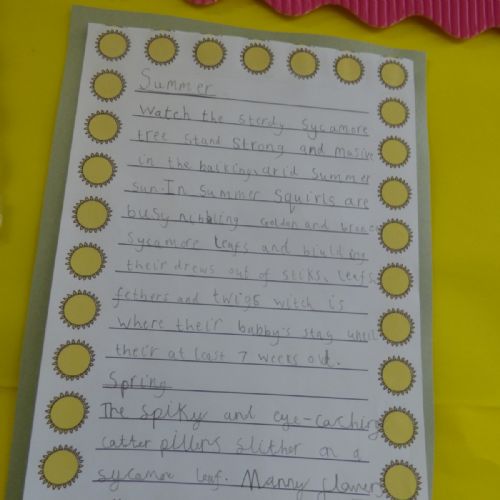 Summer
Watch the sterdy sycamore
tree stand strong and masive
in the backing arid summer
sun. In summer squirls are
busy nibbling golden and bronze
sycamore leafs and biulding
their drews out of stiks, leafs,
fethers and twigs witch is
where their babby's stay until
their at least 7 weeks old.
Spring
The spiky and eye-caching
catter pillers slither on a
sycamore leaf. Manny flowers